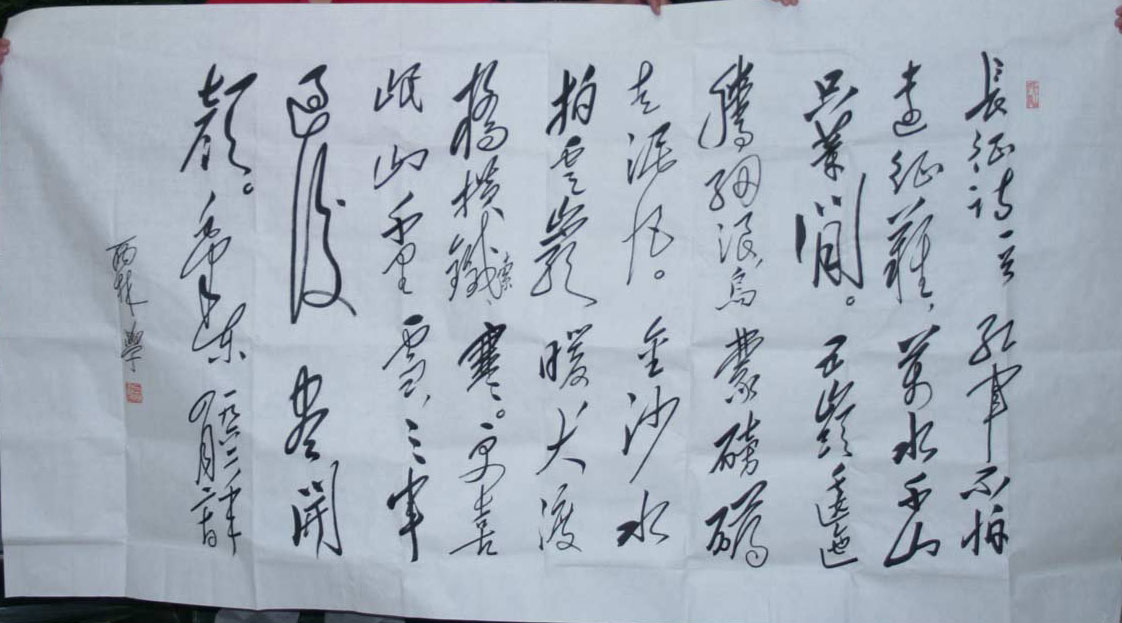 長征詩一首 红軍不怕
远征難，萬水千山
只等闲。五嶺逶迤
腾细浪，烏蒙磅礴
走泥丸。金沙水
拍雲巖暖，大渡
橋横鐵索寒。更喜
岷山千里雪，三軍
過後尽開
顔。毛澤東 一九六二年
四月二十日
西林學